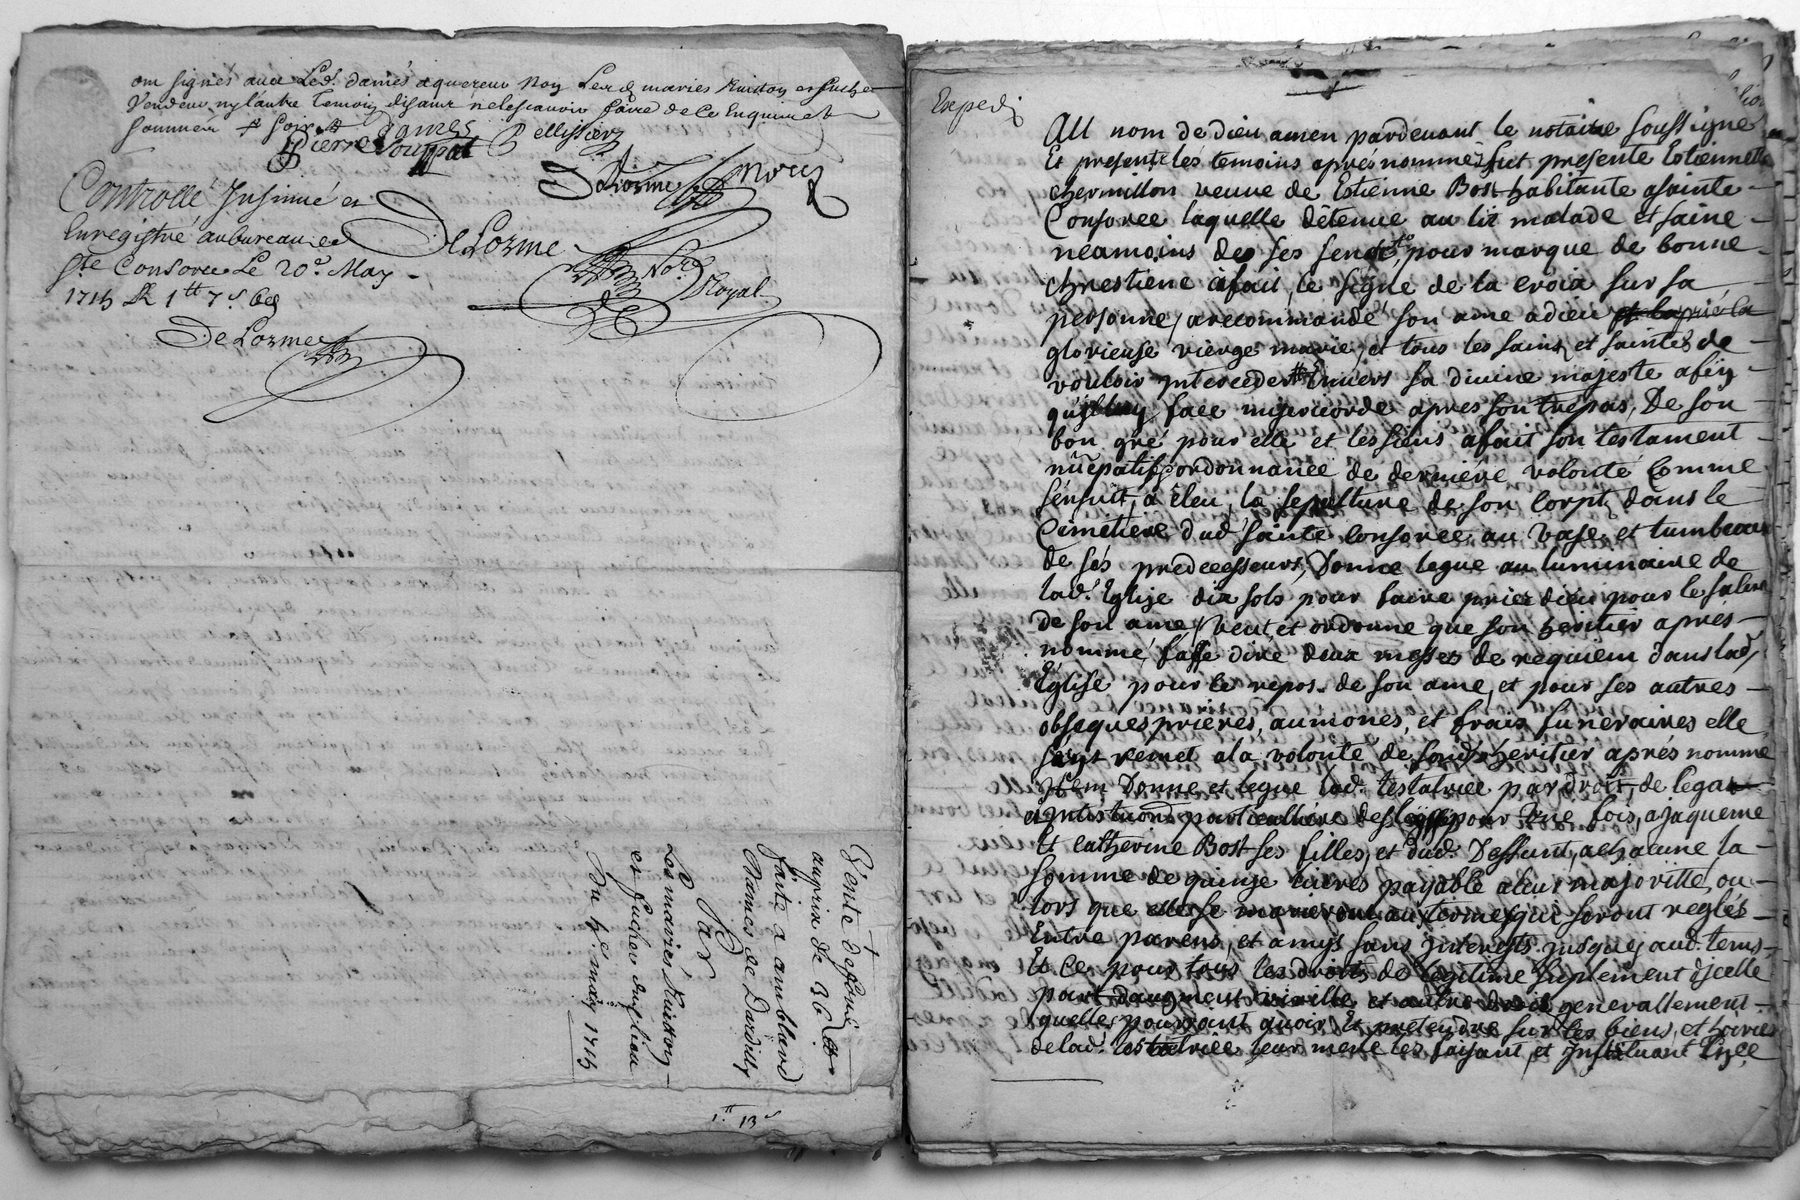 ont signés avec Led. damés aquereur Non Les d. mariés
Vendeur ny l'autre Temoin disant ne le scavoir faire de ce Enquis et
sommés
Pierre Pouppat Pellissier
DeLorme
Controllé Insinué et
Enregistré au bureau de
Ste Consorce Le 20e May
1715 R 1tt 7s 6d
DeLorme
DeLorme
No.re Royal
Vente de fond
au prix de 36tt
faite a amblard
Dames de Dardilly
Par
Les mariés
et fuchez du lieu
Du 4e. may 1715
1tt 13s
Expedi
AU nom de dieu amen pardevant le notaire soussigné
Et presents les temoins aprés nommés fut presente Estiennette
chermillon veuve de Estienne Bost habitante a sainte
Consorce laquelle détenue au lit malade et saine
néamoins de ses sens, pour marque de bonne
chrestiene a fait le signe de la croix sur sa
personne, a recommandé son ame a dieu et la prié la
glorieuse vierge marie, et tous les sains et saintes de
vouloir interceder Envers sa divine majesté afin
qu'il luy face misericorde apres son trépas, De son
bon gré pour elle et les siens a fait son testament
nuncpatif ordonnance de derniére volonté Comme
sensuit, a éleu la sepulture de son corps dans le
Cimetiere dud. sainte Consorce au vase et tumbeau
de sés predecesseurs, Donne legue au luminaire de
lad. Eglize dix sols pour faire prier dieu pour le salut
de son ame, veut et ordonne que son heritier aprés
nommé, fasse dire deux messes de requiem dans lad.
Eglise pour le repos de son ame, et pour ses autres
obseques priéres, aumones, et frais funeraires elle
s'en remet a la volonté de sond. heritier aprés nommé
Item Donne et legue lad. testatrice par droit de legat
et institution particuliére pour Une fois, a jaqueme
Et catherine Bost ses filles, et dud. Deffunt, a chacune la
somme de quinze livres payable a leur majoritté, ou
lors que elles se marieront au termes qui seront reglés
Entre parens, et amys sans Interests jusques aud. tems,
Et Ce pour tous les droits de legitime suplement d'jcelle
part daugment virille et autre droit generallement
quelles pourroint avoir Et pretendre sur les biens, et hoirie
de lad. testatrice leur mere les faisant, et Instituant